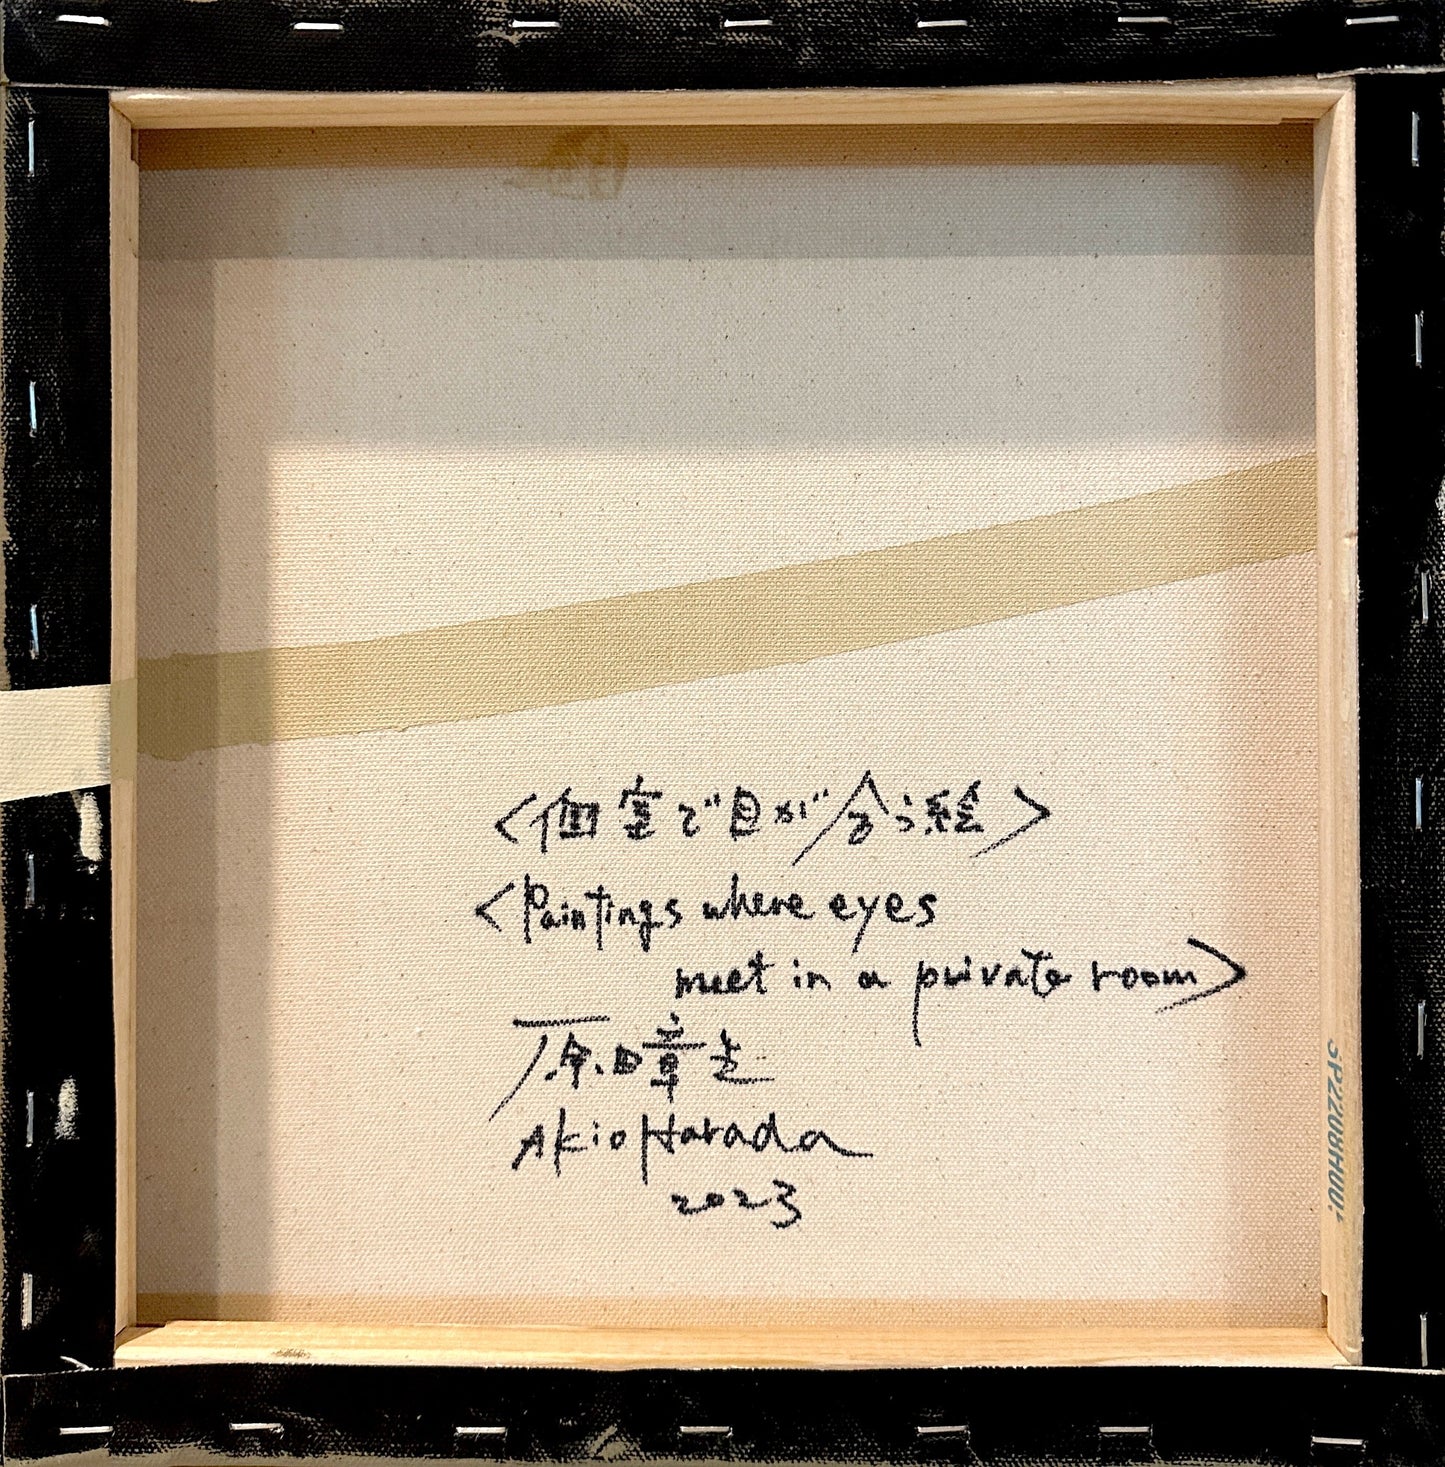 <個室で目が合う絵>
<Paintings where eyes
meet in a private room>
原田章生
Akio Harada
2023